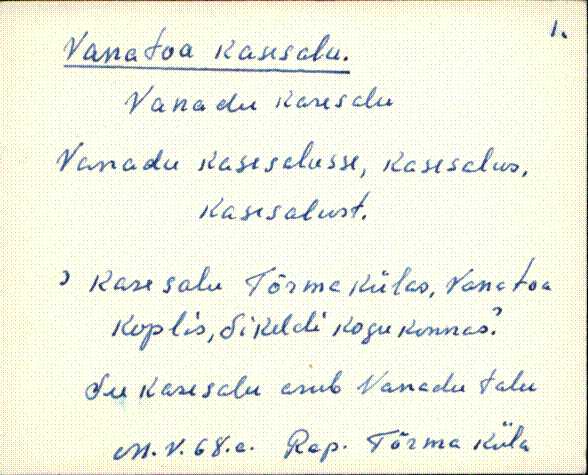 1.
Vanatoa kasesalu.
Vanadu kasesalu
Vanadu kasesalusse, kasesalus,
kasesalust.
? Kasesalu Tõrma külas, Vanatoa
koplis, Sikeldi kogukonnas?
See kasesalu asub Vanadu talu
M.V. 68.a. Rap. Tõrma küla